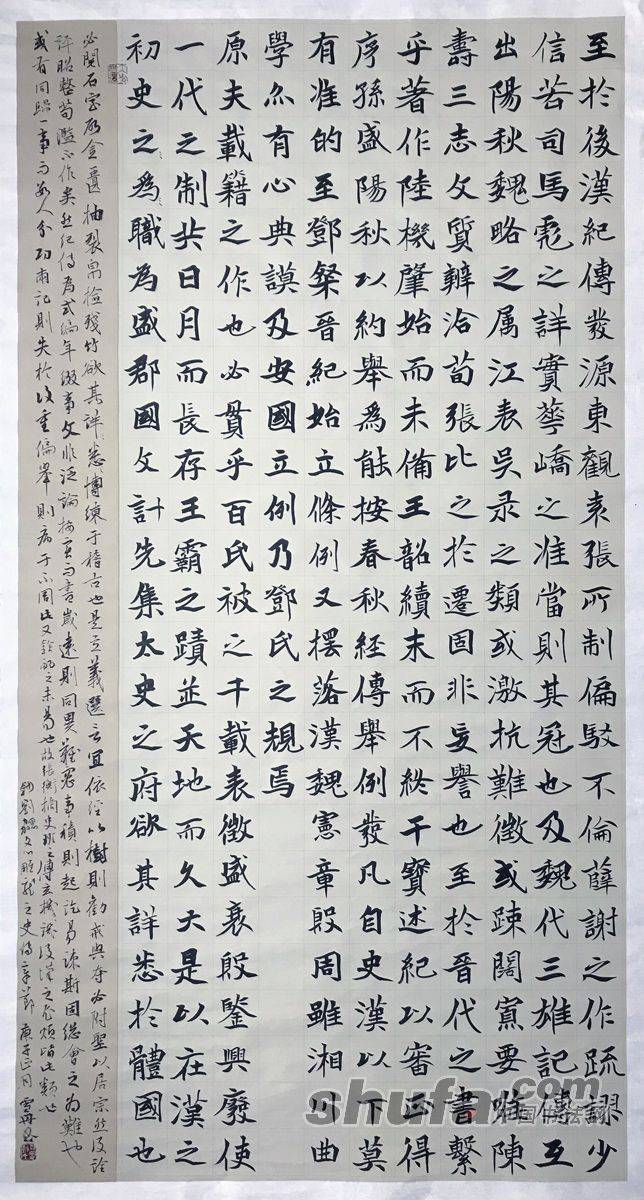 至於後漢紀傳發源東觀袁張所制偏駁不倫薛謝之作疏謬少
信若司馬彪之詳實華嶠之准當則其冠也及魏代三雄記傳互
出陽秋魏略之属江表吳录之類或激抗難徵或疎闊寡要唯陳
壽三志文質辨洽荀張比之於遷固非妄譽也至於晉代之書繫
乎著作陸機肇始而未備王韶續末而不終干寶述紀以審正得
序孫盛陽秋以約舉為能按春秋經傳舉例發凡自史漢以下莫
有准的至鄧粲晉紀始立條例又擺落漢魏憲章殷周雖湘川曲
學亦有心典謨及安國立例乃鄧氏之規焉
原夫載籍之作也必貫乎百氏被之千載表徵盛衰殷鑒興廢使
一代之制共日月而長存王霸之蹟並天地而久大是以在漢之
初史之為職為盛郡國文計先集太史之府欲其詳悉於體國也
必閱石室啟金匱抽裂帛檢殘竹欲其詳悉博練于稽古也是立義選言宜依經以樹則勸戒與奪必附聖以居宗然後詮
評昭整苛濫不作矣然紀傳為式編年綴事文非泛論按實而書歲遠則同異難密事積則起訖易疎斯固總會之為難也
或有同歸一事而數人分功兩記則失於復重偏舉則病于不周此又詮配之未易也故張衡摘史班之傅玄譏後漢之尤煩皆此類也
鈔劉勰文心雕龍之史傳章節 庚子正月
shufa.com
中国书法网